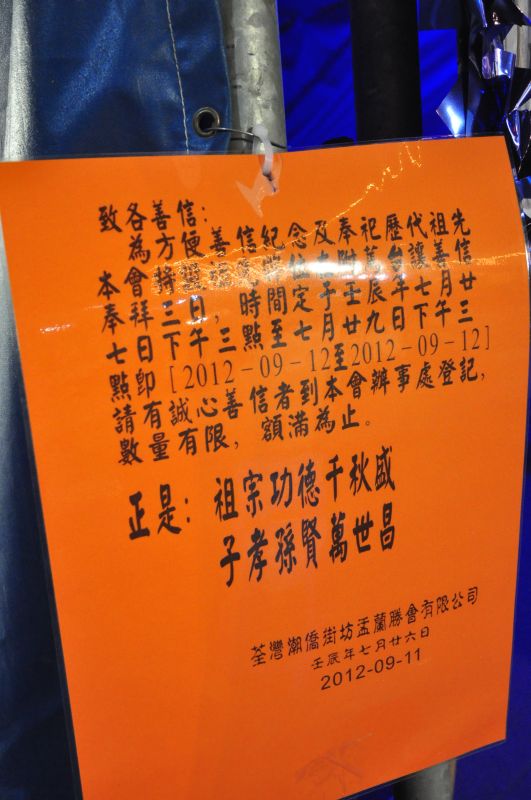 致各善信:
為方便善信紀念及奉祀歷代祖先
本會將位附台讓善信
奉拜三日,時間定于壬辰年七月廿
七日下午三點至七月廿九日下午三
點即[2012-09-12至2012-09-12]
請有誠心善信者到本會辦事處登記,
數量有限,額滿為止。
正是:祖宗功德千秋盛
子孝孫賢萬世昌
荃灣潮僑街坊盂蘭勝會有限公司
壬辰年七月廿六日
2012-09-11